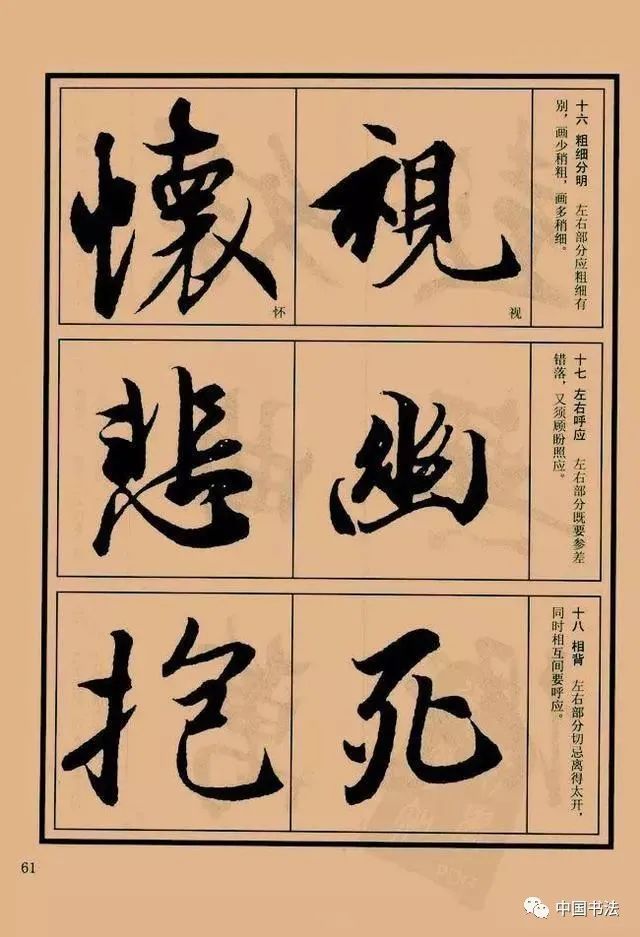 十六 粗细分明 左右部分应粗细有
别，画少稍粗，画多稍细。
視
视
懷
怀
十七 左右呼应 左右部分既要参差
错落，又须顾盼照应。
幽
悲
十八 相背 左右部分切忌离得太开，
同时相互间要呼应。
死
抱
61
中国书法